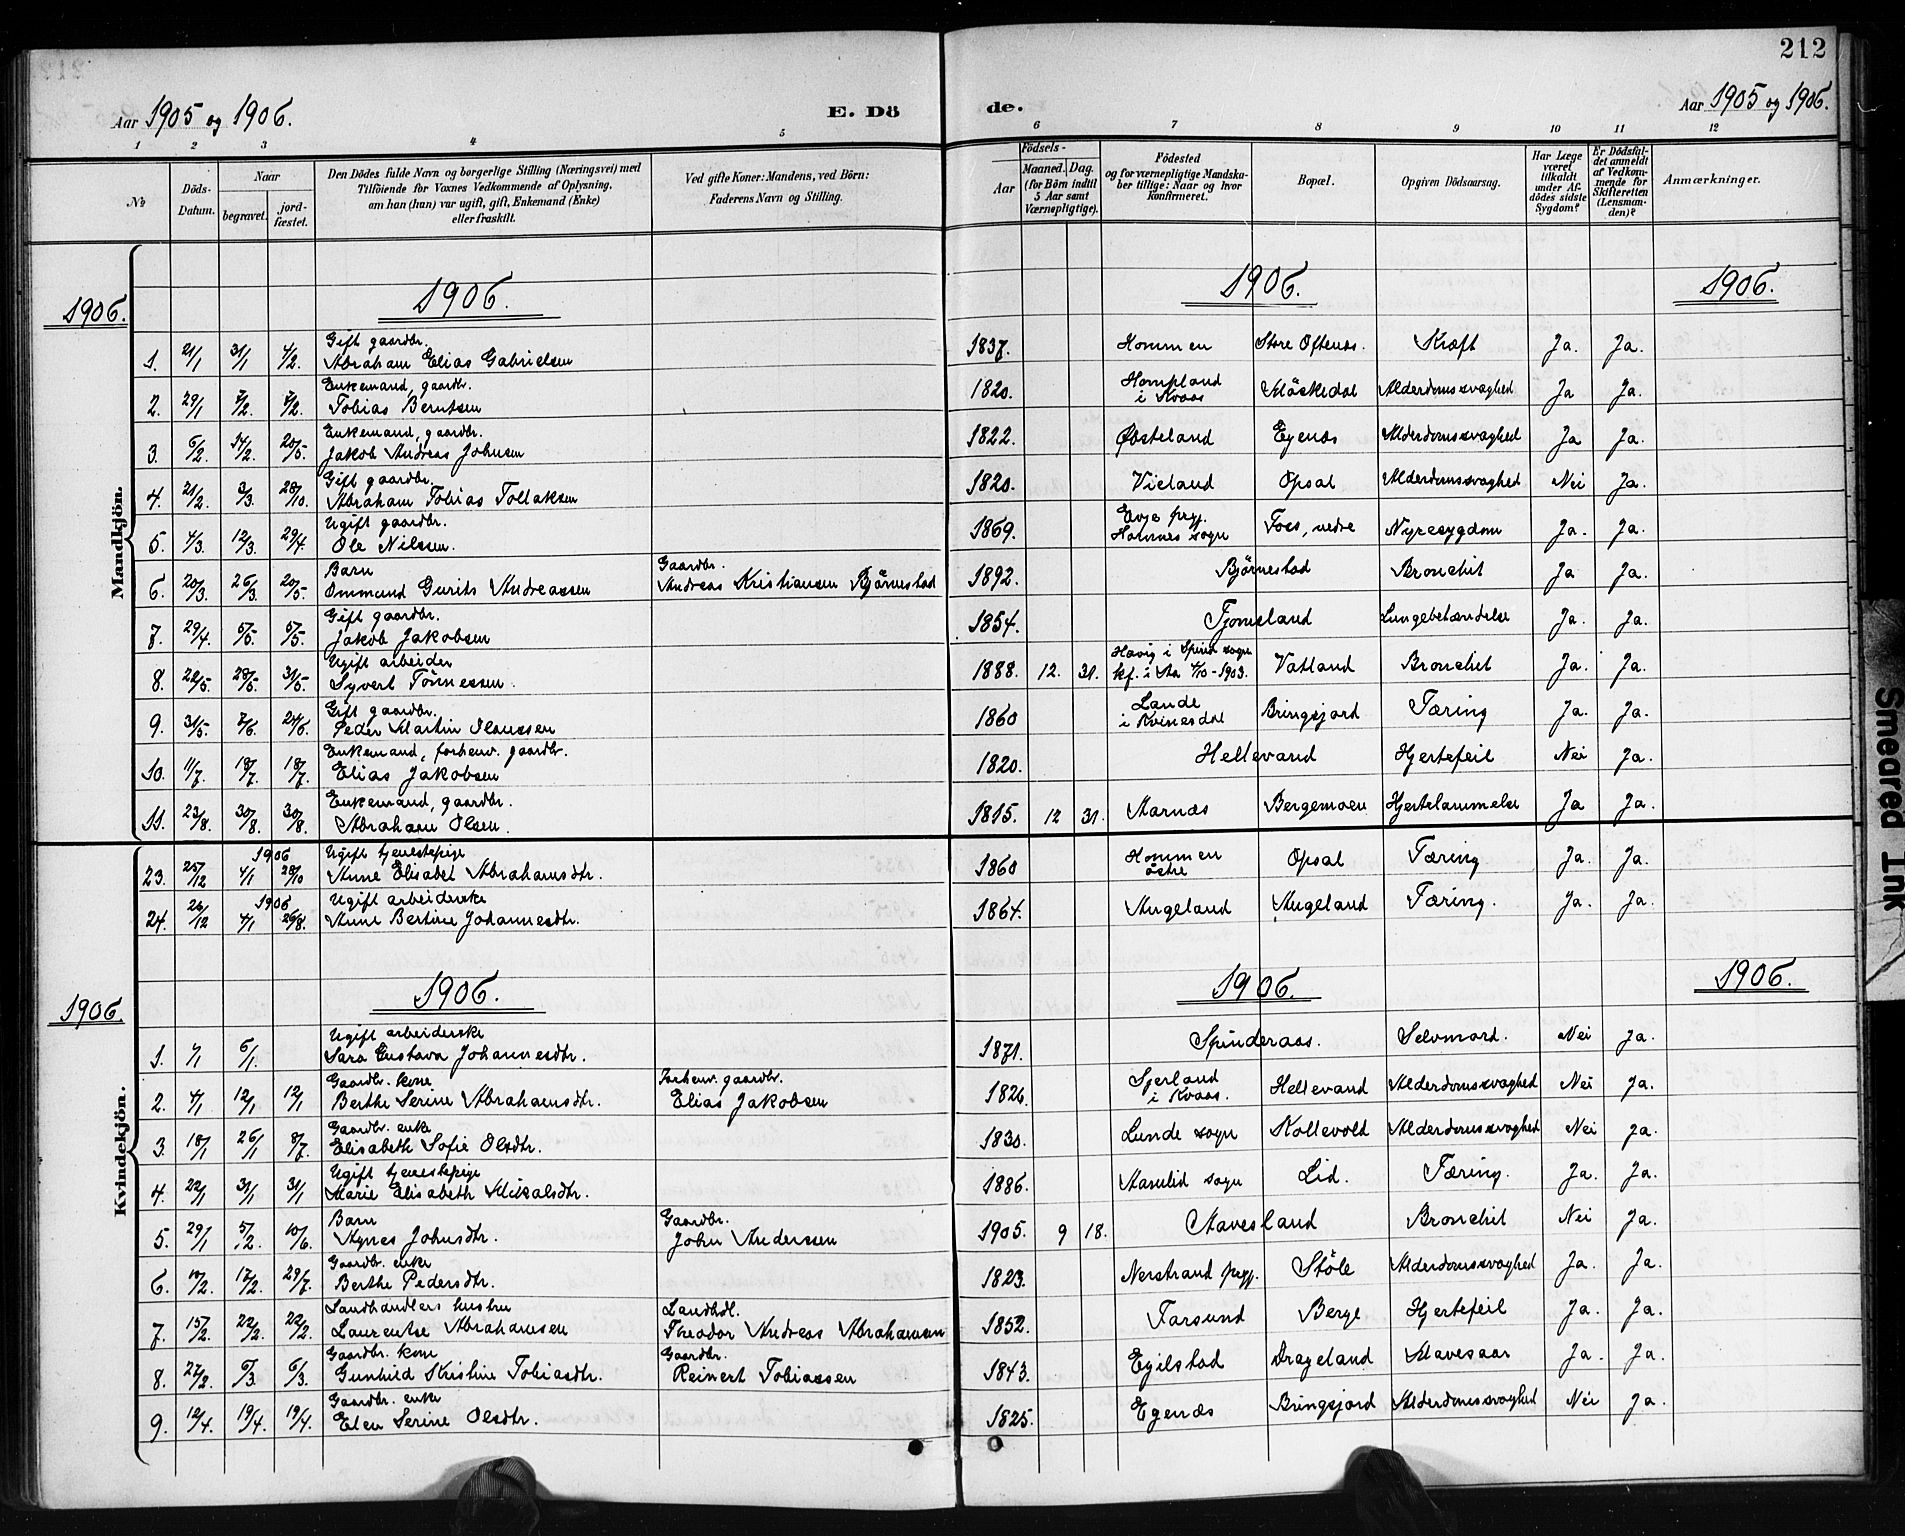 212
Aar 1905 og 1906.
E. Dö
de.
Aar 1905 og 1906.
1 2 3 4 5 6 7 8 9 10 11 12
No
Döds-Datum.
Naar
begravet.
jord-fæstet.
Den Dödes fulde Navn og borgerlige Stilling (Næringsvei) med
Tilföiende for Voxnes Vedkommende af Oplysning,
om han (hun) var ugift, gift, Enkemand (Enke)
eller fraskilt.
Ved gifte Koner: Mandens, ved Börn:
Faderens Navn og Stilling.
Födsels-
Aar
Maaned. Dag.
(for Börn indtil
5 Aar samt
Værnepligtige).
Födested
og for værnepligtige Mandska-
ber tillige: Naar og hvor
konfirmeret.
Bopæl.
Opgiven Dödsaarsag.
Har Læge
været
tilkaldt
under Af-
dödes sidste
Sygdom?
Er Dödsfal-
det anmeldt
af Vedkom-
mende for
Skifteretten
(Lensman-
den)?
Anmærkninger.
Mandkjön.
1906. 1906. 1906. 1906.
Gift gaardbr.
1. 21/1 31/1 4/2. Abraham Elias Gabrielsen 1837. Hommen Store Oftenæs. Kræft Ja. Ja.
Enkemand, gaardbr.
2. 29/1 7/2. 7/2. Tobias Berntsen 1820. Hompland i Kvaas Möskedal Alderdomssvaghed Ja Ja.
Enkemand, gaardbr.
3. 6/2. 14/2. 20/5. Jakob Andreas Johnsen 1822. Øbsteland Egenæs Alderdomssvaghed Ja Ja.
Gift gaardbr.
4. 21/2. 3/3. 28/10. Abraham Tobias Tollaksen 1820. Vieland Opsal Alderdomssvaghed Nei Ja.
Ugift gaardbr.
5. 4/3. 12/3. 29/4. Ole Nilssen. 1869. Evje prgj. Hornnes sogn Foss, nedre Nyresygdom Ja. Ja.
Barn Gaardbr.
6. 20/3. 26/3. 20/5. Ommund Gurits Andreassen Andreas Kristiansen Bjørnestad 1892. Bjørnestad Bronchit Ja Ja.
Gift gaardbr.
7. 29/4. 6/5. 6/5. Jakob Jakobsen 1854. Fjomeland Lungebetændelse Ja. Ja.
Ugift arbeider
8. 22/5. 28/5. 31/5. Syvert Tønnessen. 1888. 12. 31. Havig i Spind sogn kf. i Aa 4/10-1903. Vatland Bronchit Ja. Ja.
Gift gaardbr.
9. 31/5. 7/6. 24/6. Peder Martin Olaussen 1860 Lande i Kvinesdal Bringsjord Tæring Ja. Ja.
Enkemand, forhenv. gaardbr.
10. 11/7. 18/7. 18/7. Elias Jakobsen 1820. Hellevand Hjertefeil Nei Ja.
Enkemand, gaardbr.
11. 23/8. 30/8. 30/8. Abraham Olsen. 1815. 12 31. Aarnæs Bergemoen Hjertelammelse Ja Ja.
Kvindekjön.
1906 Ugift tjenestepige
23. 25/12 4/1 28/10 Anne Elisabet Abrahamsdtr. 1860 Hommen östre Opsal Tæring Ja. Ja.
1906 Ugift arbeiderske
24. 26/12 4/1 26/8. Anne Bertine Johannesdtr. 1864. Augeland Augeland Tæring. Ja. Ja.
1906. 1906. 1906. 1906.
Ugift arbeiderske
1. 6/1. Sara Gustava Johannesdtr. 1871. Spinderaas. Selvmord. Nei Ja.
Gaardbr. kone Forhenv. gaardbr.
2. 4/1 12/1 12/1 Berthe Serine Abrahamsdtr. Elias Jakobsen 1826. Sjerland i Kvaas. Hellevand Alderdomssvaghed Nei Ja.
Gaardbr. enke
3. 18/1 26/1 8/7. Elisabeth Sofie Olsdtr. 1830. Lunde sogn Kollevold Alderdomssvaghed Nei Ja.
Ugift tjenestepige
4. 22/1 31/1 31/1 Marie Elisabeth Mikalsdtr. 1886. Aaseral sogn Lid. Tæring. Ja. Ja.
Barn Gaardbr.
5. 29/1 5/2. 10/6. Agnes Johnsdtr. John Anderssen 1905. 9 18. Stavesland Bronchit Nei Ja.
Gaardbr. enke
6. 10/2. 17/2. 29/7. Berthe Pedersdtr. 1823. Nerstrand prgj. Støle Alderdomssvaghed Ja. Ja.
Landhandlers hustru Landhdl.
7. 15/2. 22/2. 22/2. Laurentse Abrahamsen Theodor Andreas Abrahamsen 1852. Farsund Berge Hjertefeil Ja. Ja.
Gaardbr. kone Gaardbr.
8. 27/2. 6/3. 6/3. Gunhild Kristine Tobiasdtr. Reinert Tobiassen 1843. Egilstad Drageland Mavesaar Ja. Ja.
Gaardbr. enke
9. 12/4. 19/4. 19/4. Elen Serine Olsdtr. 1825. Egenæs Bringsjord Alderdomssvaghed Nei Ja.
Smeared Ink